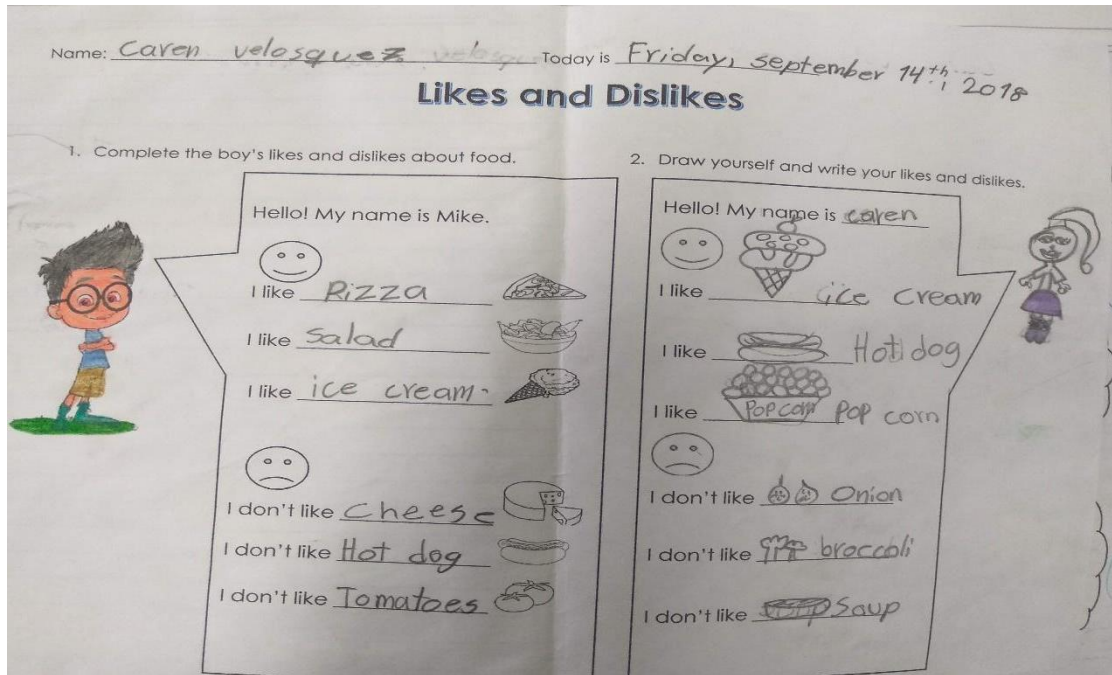 Name: Caren velasquez Today is Friday, september 14th, 2018
Likes and Dislikes
1. Complete the boy's likes and dislikes about food.
Hello! My name is Mike.
I like Pizza
I like salad
I like ice cream.
I don't like cheese
I don't like Hot dog
I don't like Tomatoes
2. Draw yourself and write your likes and dislikes.
Hello! My name is caren
I like ice cream
I like Hot dog
I like Pop corn Pop corn
I don't like Onion
I don't like broccoli
I don't like Soup